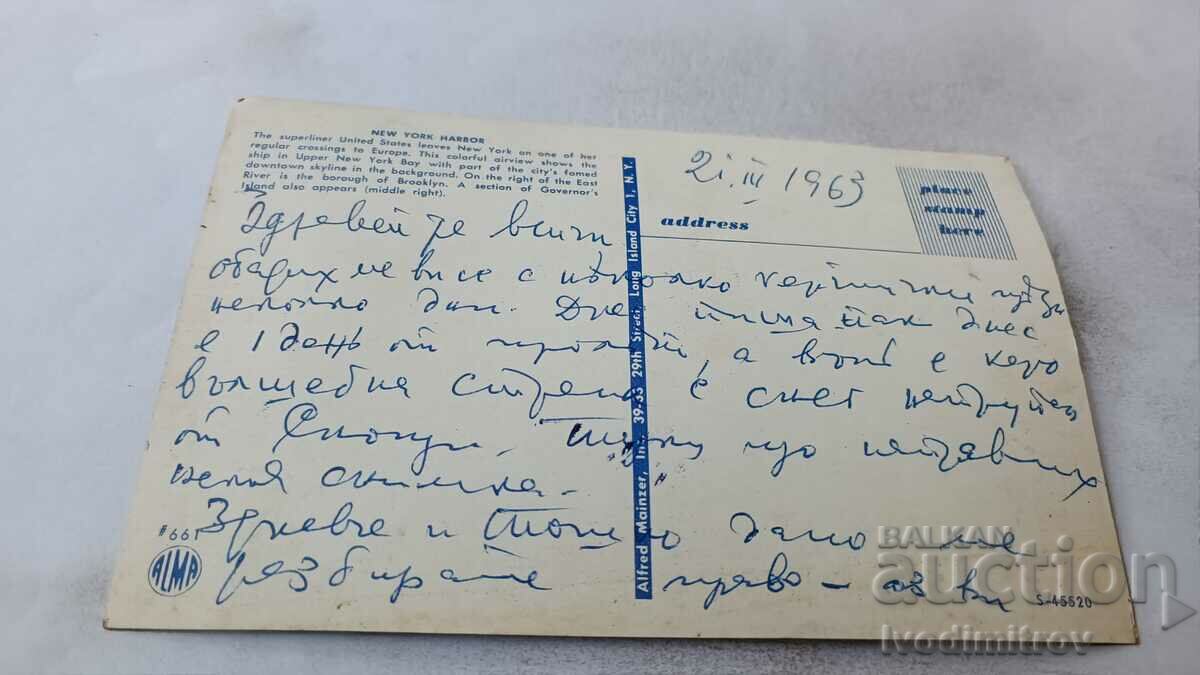 NEW YORK HARBOR
The superliner United States leaves New York on one of her
regular crossings to Europe. This colorful airview shows the
ship in Upper New York Bay with part of the city's famed
downtown skyline in the background. On the right of the East
River is the borough of Brooklyn. A section of Governor's
Island also appears (middle right).
21.III 1963
place
stamp
here
address
Alfred Mainzer, Inc. 39-33 29th Street, Long Island City 1, N.Y.
Здравейте всички
обадих се с няколко картички преди
няколко дни. Днес пиша пак днес
е 1 день от пролет, а вънь е като
вълшебна страна е снег натрупан
от снощи, направих
една снимка.
Здравейте и дано ме
разбирате право - аз ви
#661
ALMA
S-45520
BALKAN
auction
Ivodimitrov